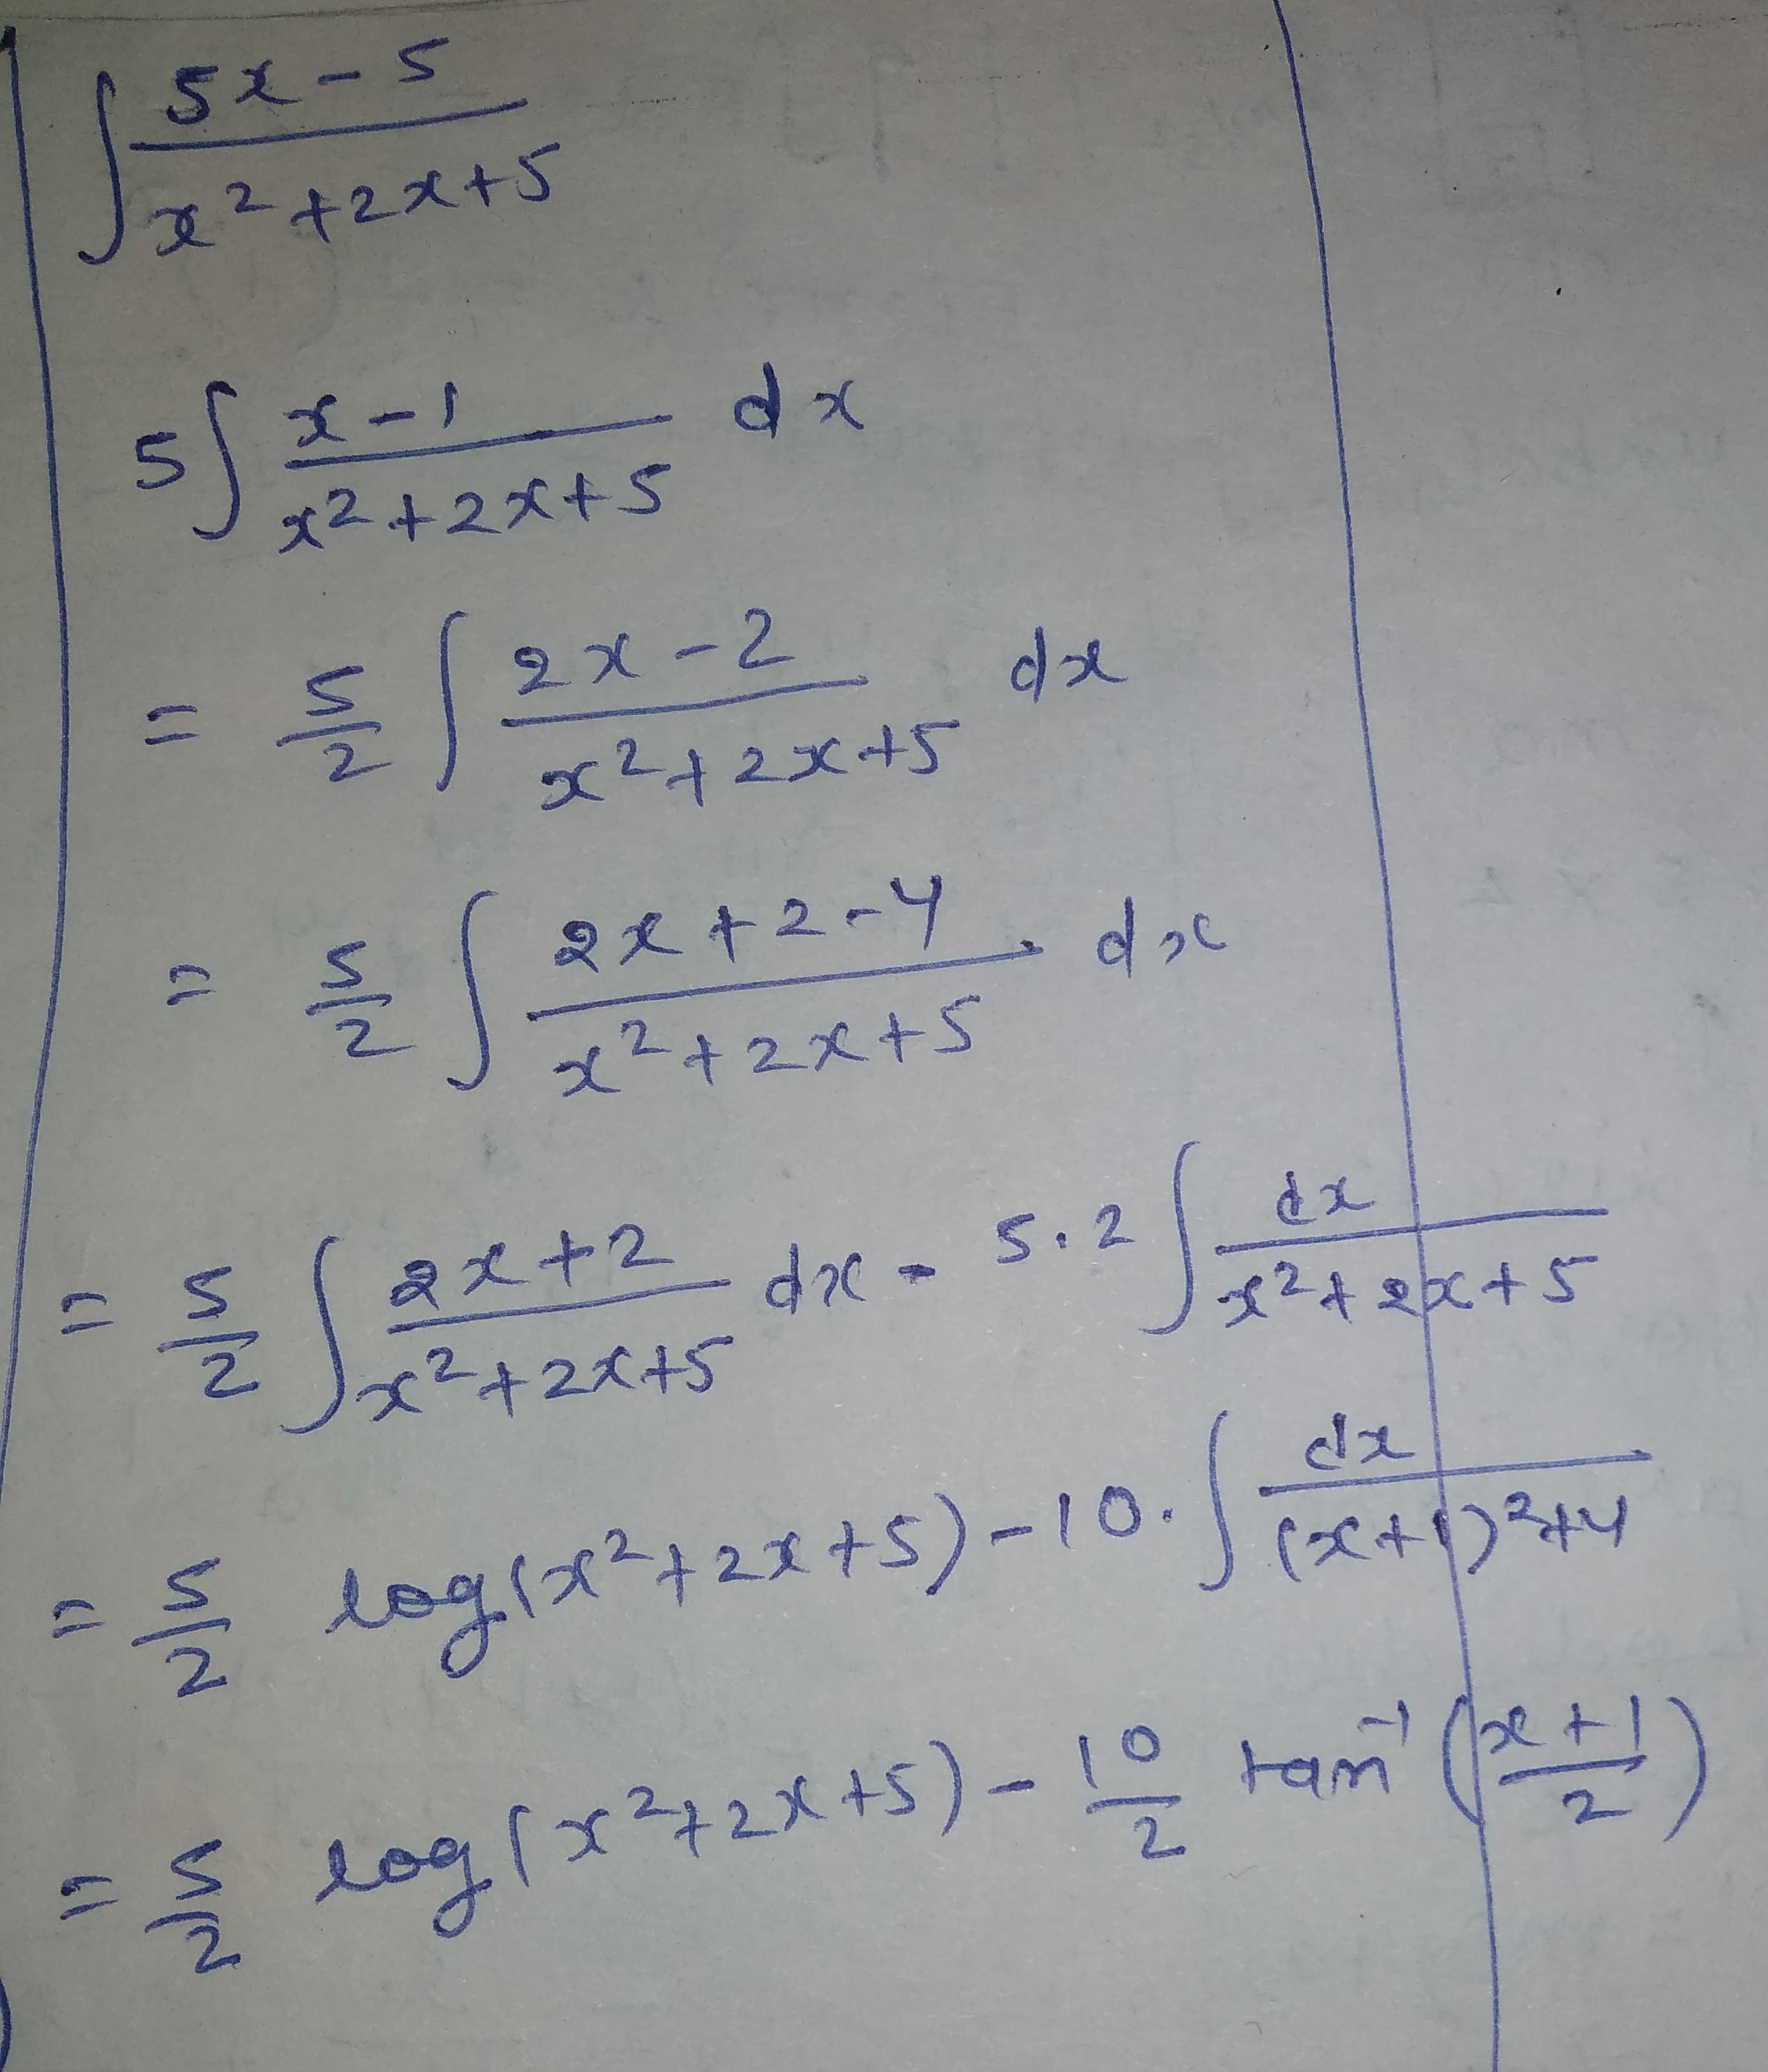 ∫ (5x-5)/(x²+2x+5)
5∫ (x-1)/(x²+2x+5) dx
= 5/2 ∫ (2x-2)/(x²+2x+5) dx
= 5/2 ∫ (2x+2-4)/(x²+2x+5) dx
= 5/2 ∫ (2x+2)/(x²+2x+5) dx - 5·2 ∫ dx/(x²+2x+5)
= 5/2 log(x²+2x+5) - 10·∫ dx/((x+1)²+4)
= 5/2 log(x²+2x+5) - 10/2 tan⁻¹((x+1)/2)